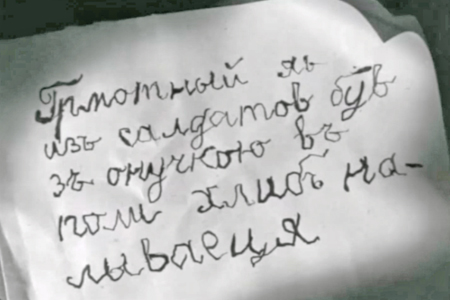 Грмотный як
изъ салдатов був
зъ онучкою въ
поли хлибъ на-
лываеця